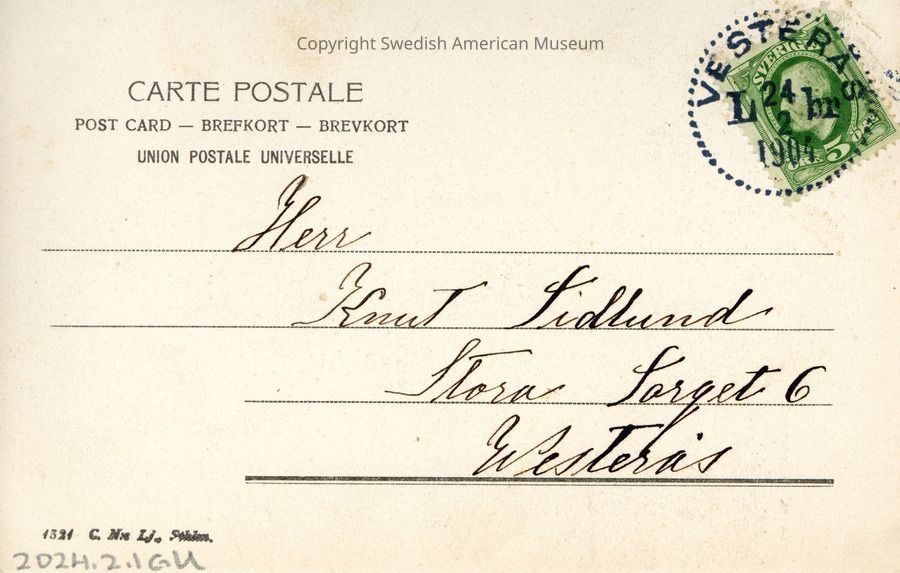 Copyright Swedish American Museum
CARTE POSTALE
POST CARD — BREFKORT — BREVKORT
UNION POSTALE UNIVERSELLE
VESTERÅS
SVERIGE
L 24 br
2
1904
5 ÖRE
Herr
Knut Sidlund
Stora Torget 6
Westerås
1321 C. N:s Lj., Sthlm.
2024.2.1GU